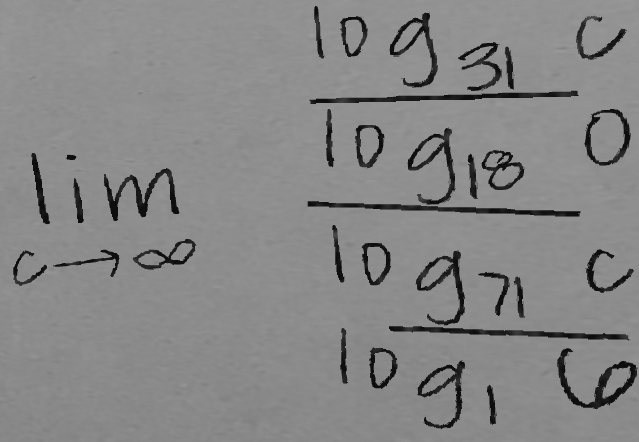 lim c→∞
log₃₁ c
log₁₈ 0
log₇₁ c
log₁ 6